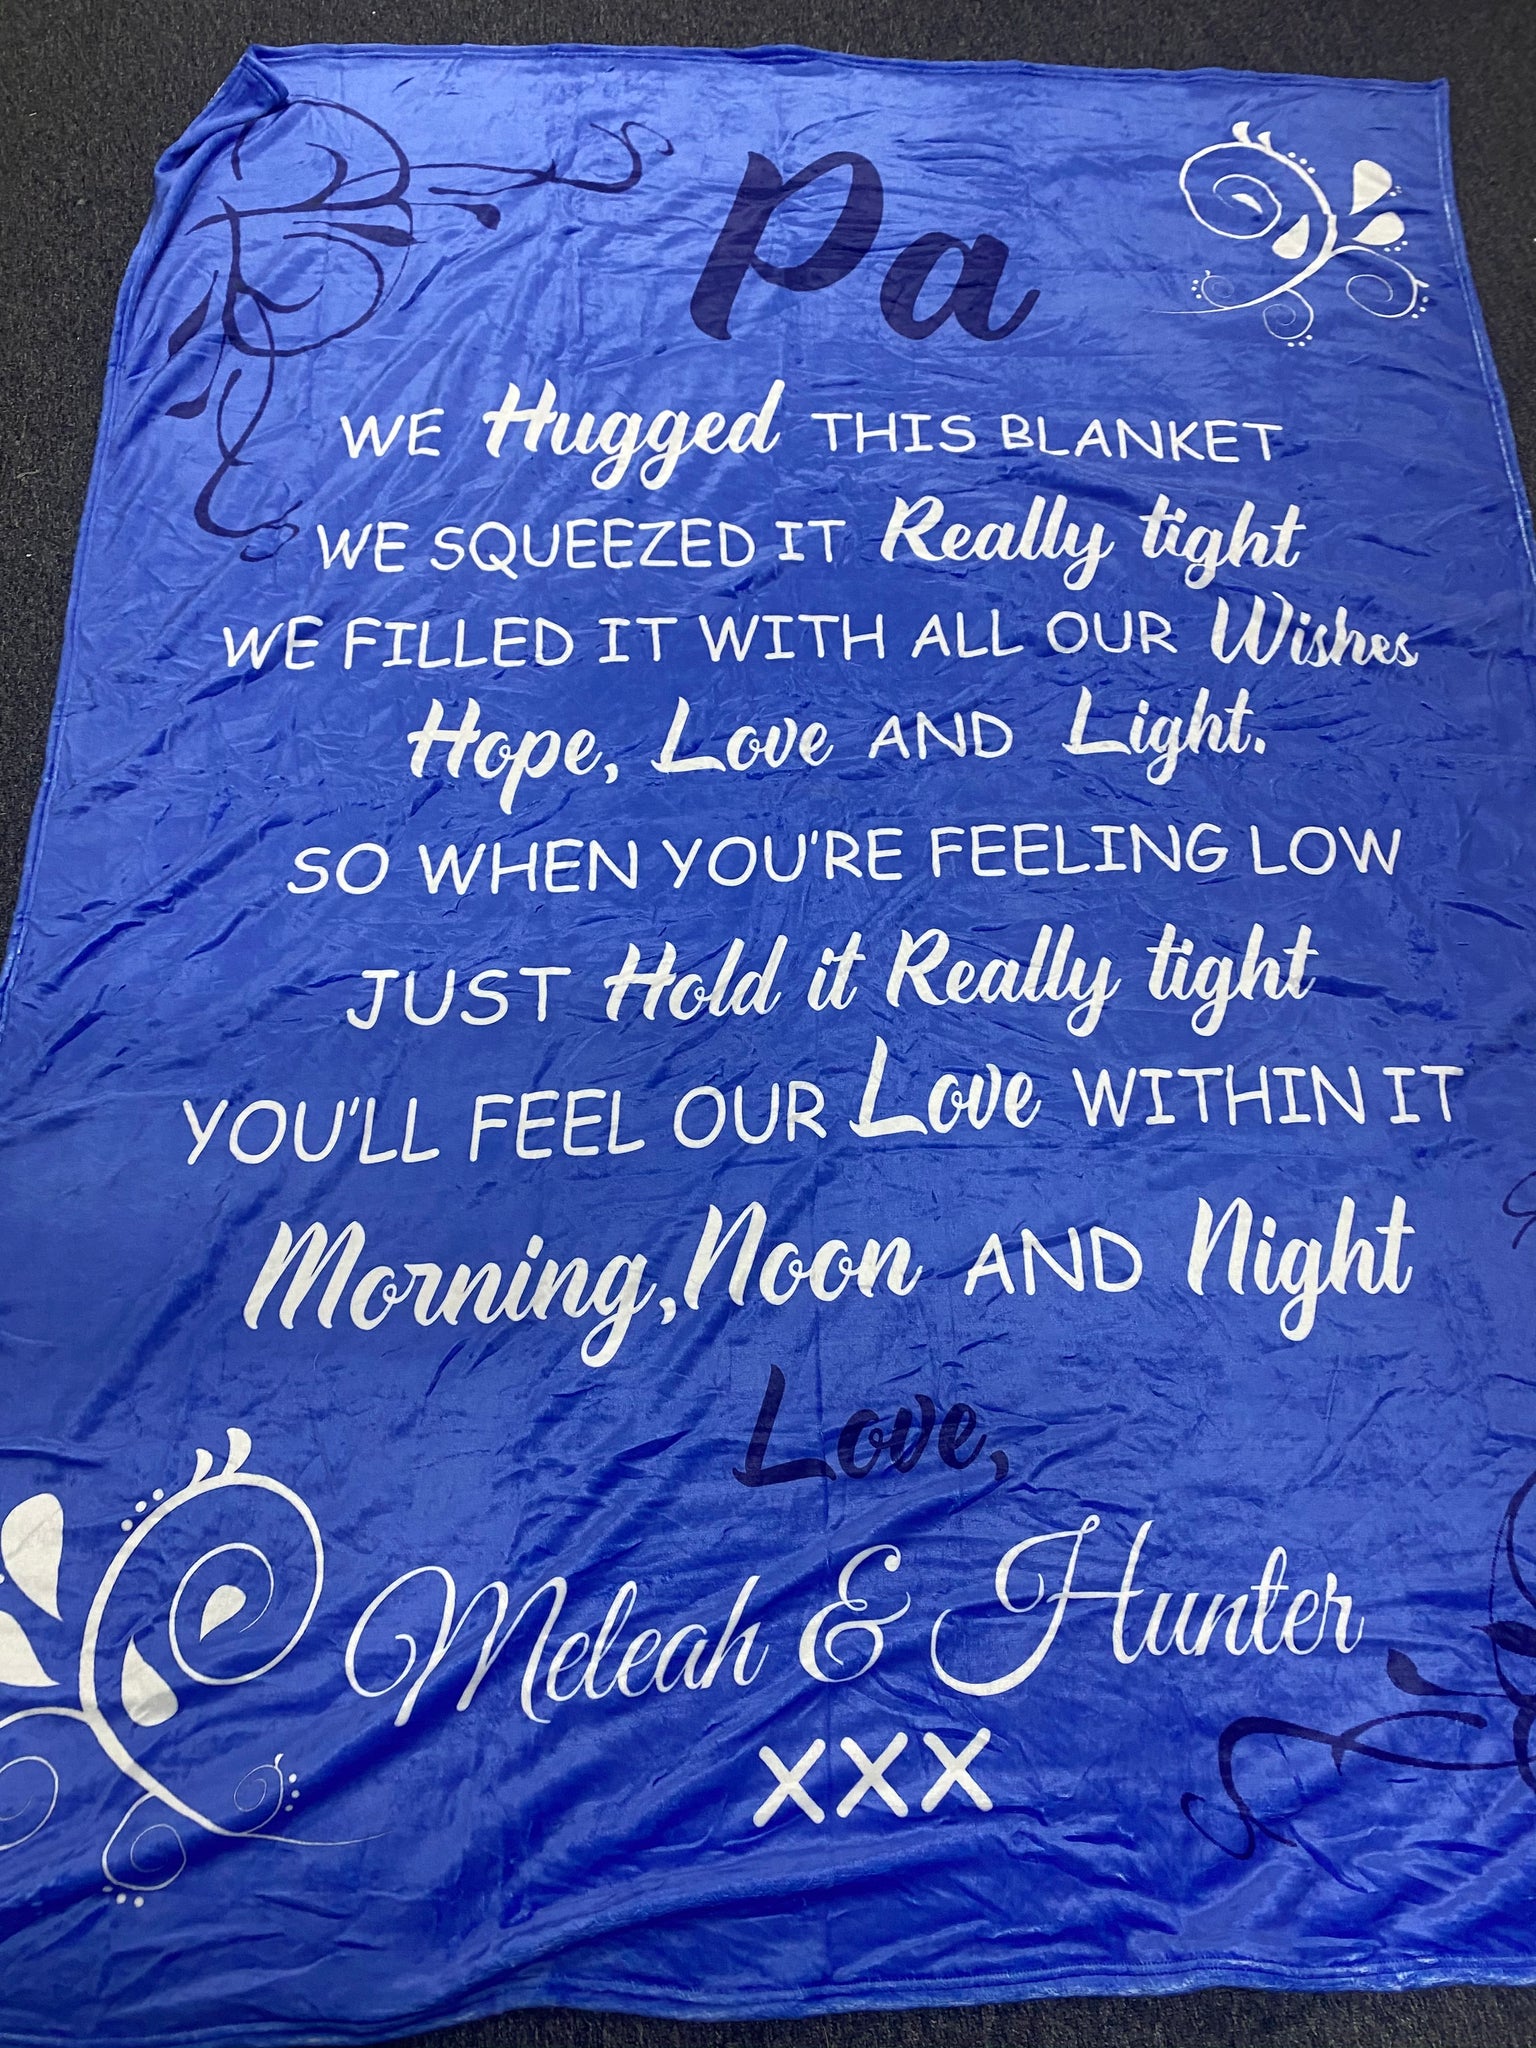 Pa
WE Hugged THIS BLANKET
WE SQUEEZED IT Really tight
WE FILLED IT WITH ALL OUR Wishes
Hope, Love AND Light.
SO WHEN YOU'RE FEELING LOW
JUST Hold it Really tight
YOU'LL FEEL OUR Love WITHIN IT
Morning, Noon AND Night
Love,
Meleah & Hunter
XXX